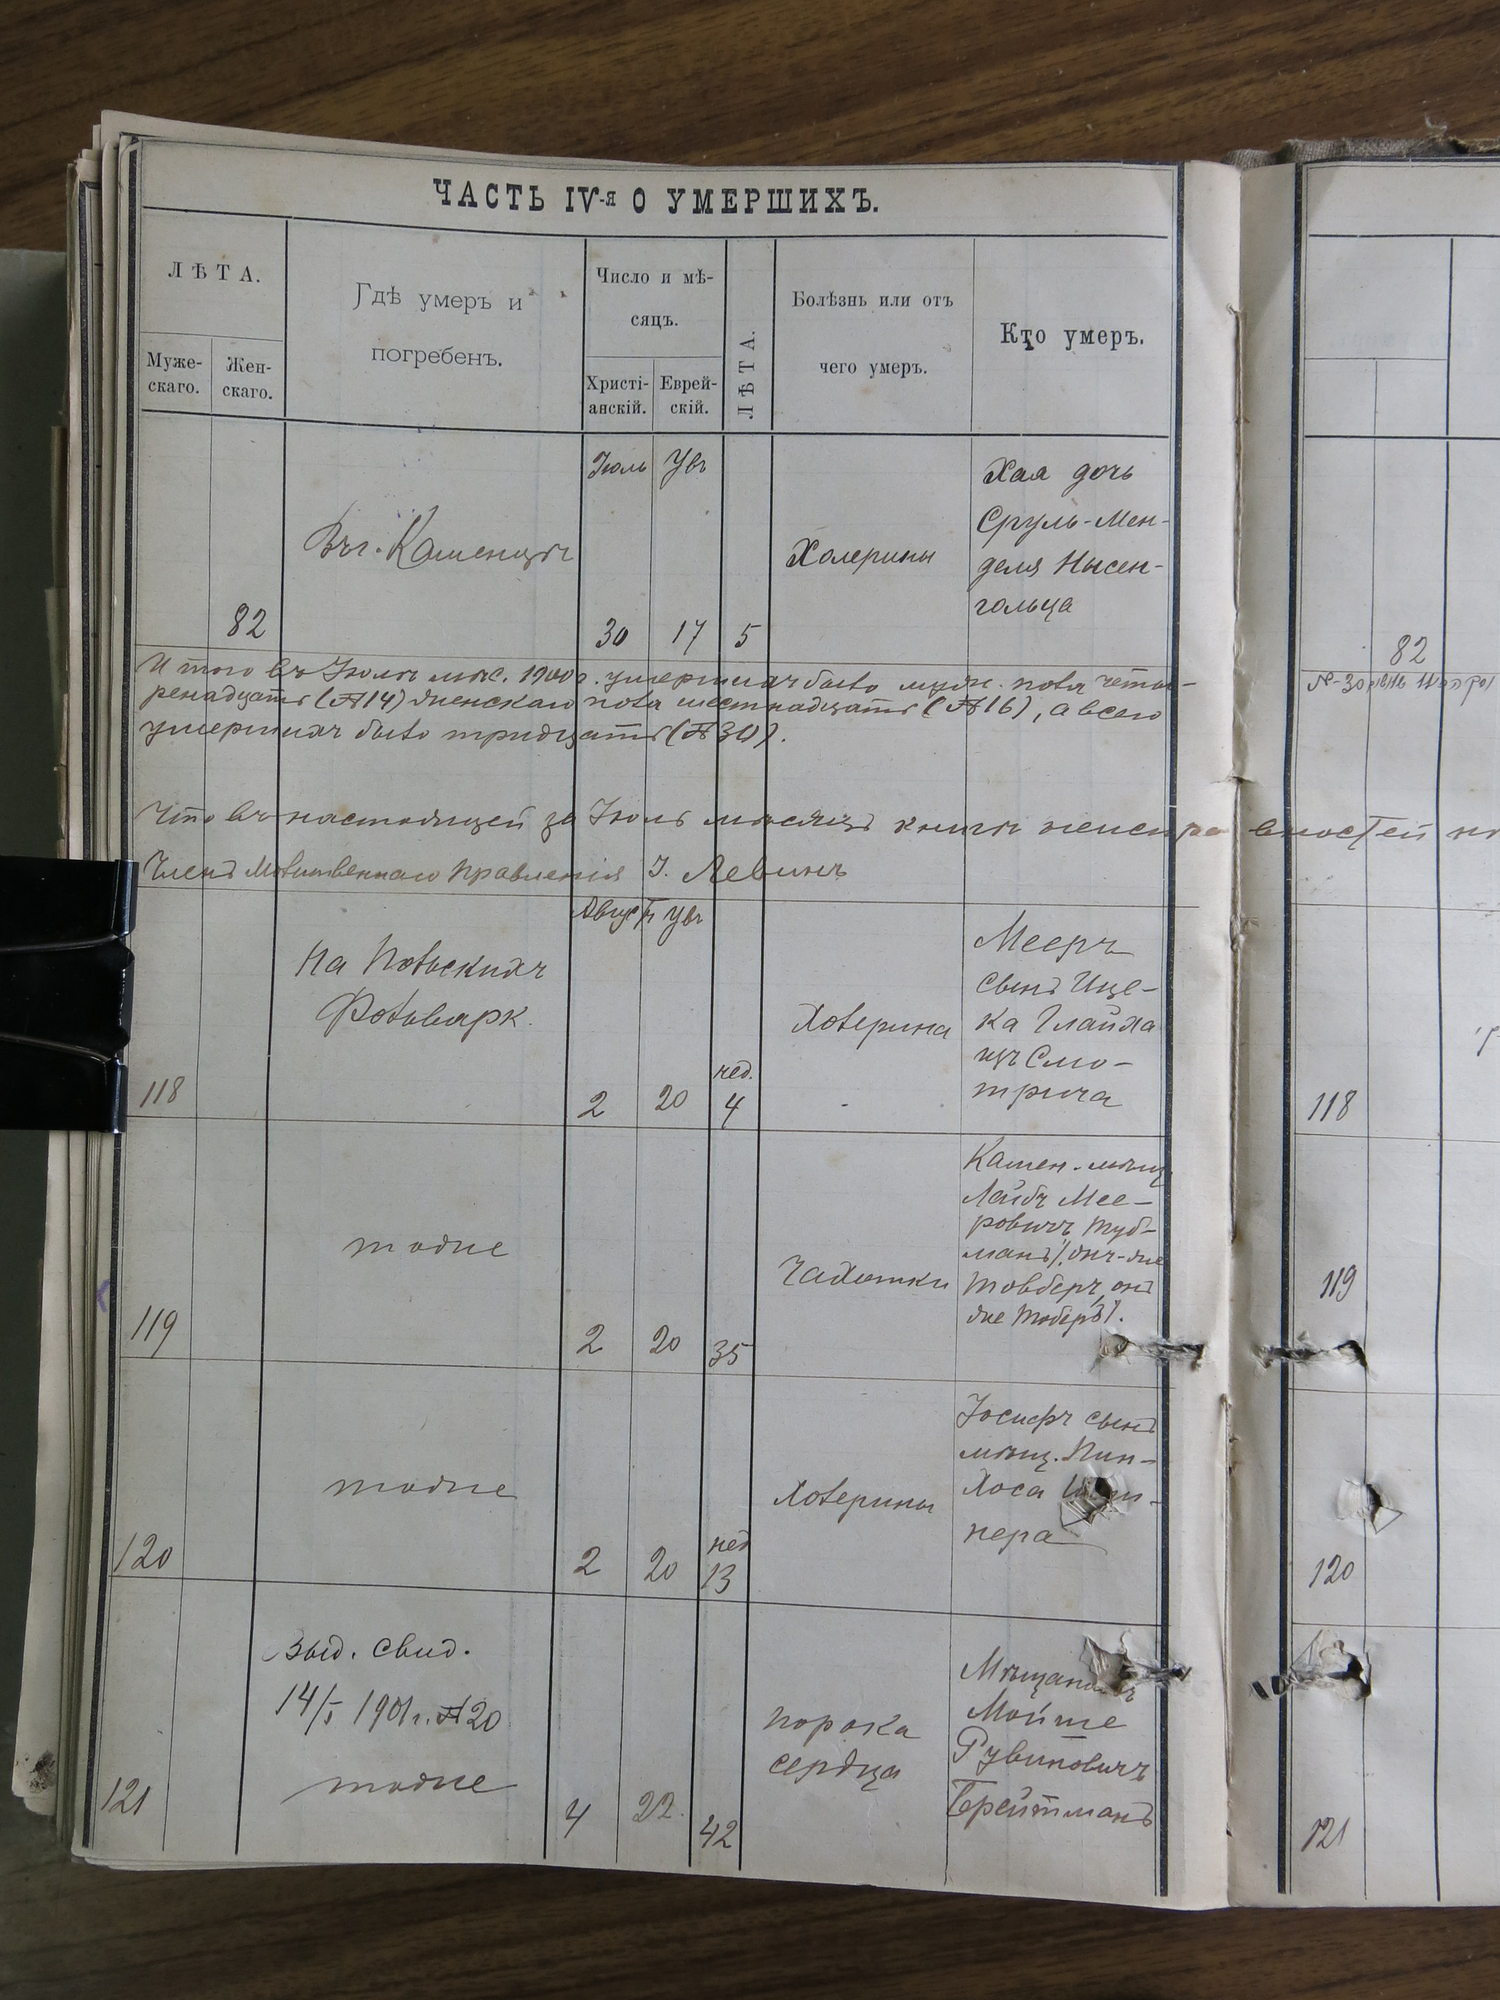 ЧАСТЬ IV-я О УМЕРШИХЪ.
ЛѢТА.
Муже-
скаго.
Жен-
скаго.
Гдѣ умеръ и
погребенъ.
Число и мѣ-
сяцъ.
Христі-
анскій.
Еврей-
скій.
ЛѢТА.
Болѣзнь или отъ
чего умеръ.
Кто умеръ.
Іюль
Увъ
Въ г. Каменцѣ
82
30
17
5
Холерины
Хая дочь
Сруль-Мен-
деля Нысен-
гольца
Итого въ Іюлѣ мѣс. 1900 г. умершихъ было муж. пола четы-
рнадцать (№ 14) женскаго пола шестнадцать (№ 16), а всего
умершихъ было тридцать (№ 30).
Что въ настоящей за Іюль мѣсяцъ книгѣ неисправностей
Членъ Молитвеннаго Правленія І. Левинъ
Августъ
Увъ
118
На Польскихъ
Фольварк.
2
20
нед.
4
Холерина
Мееръ
сынъ Ице-
ка Глайха
изъ Смо-
трича
119
тоже
2
20
35
Чахотки
Камен. мѣщ.
Лейбъ Мее-
ровичъ Туб-
манъ (онъ-же
Товберъ, онъ
же Тоберъ).
120
тоже
2
20
нед
13
Холерины
Іосифъ сынъ
мѣщ. Пин-
хоса
нера
121
Выд. свид.
14/I 1901 г. № 20
тоже
4
22
42
порока
сердца
Мѣщанинъ
Мойше
Рувиновичъ
Брейтманъ
82
118
119
120
121